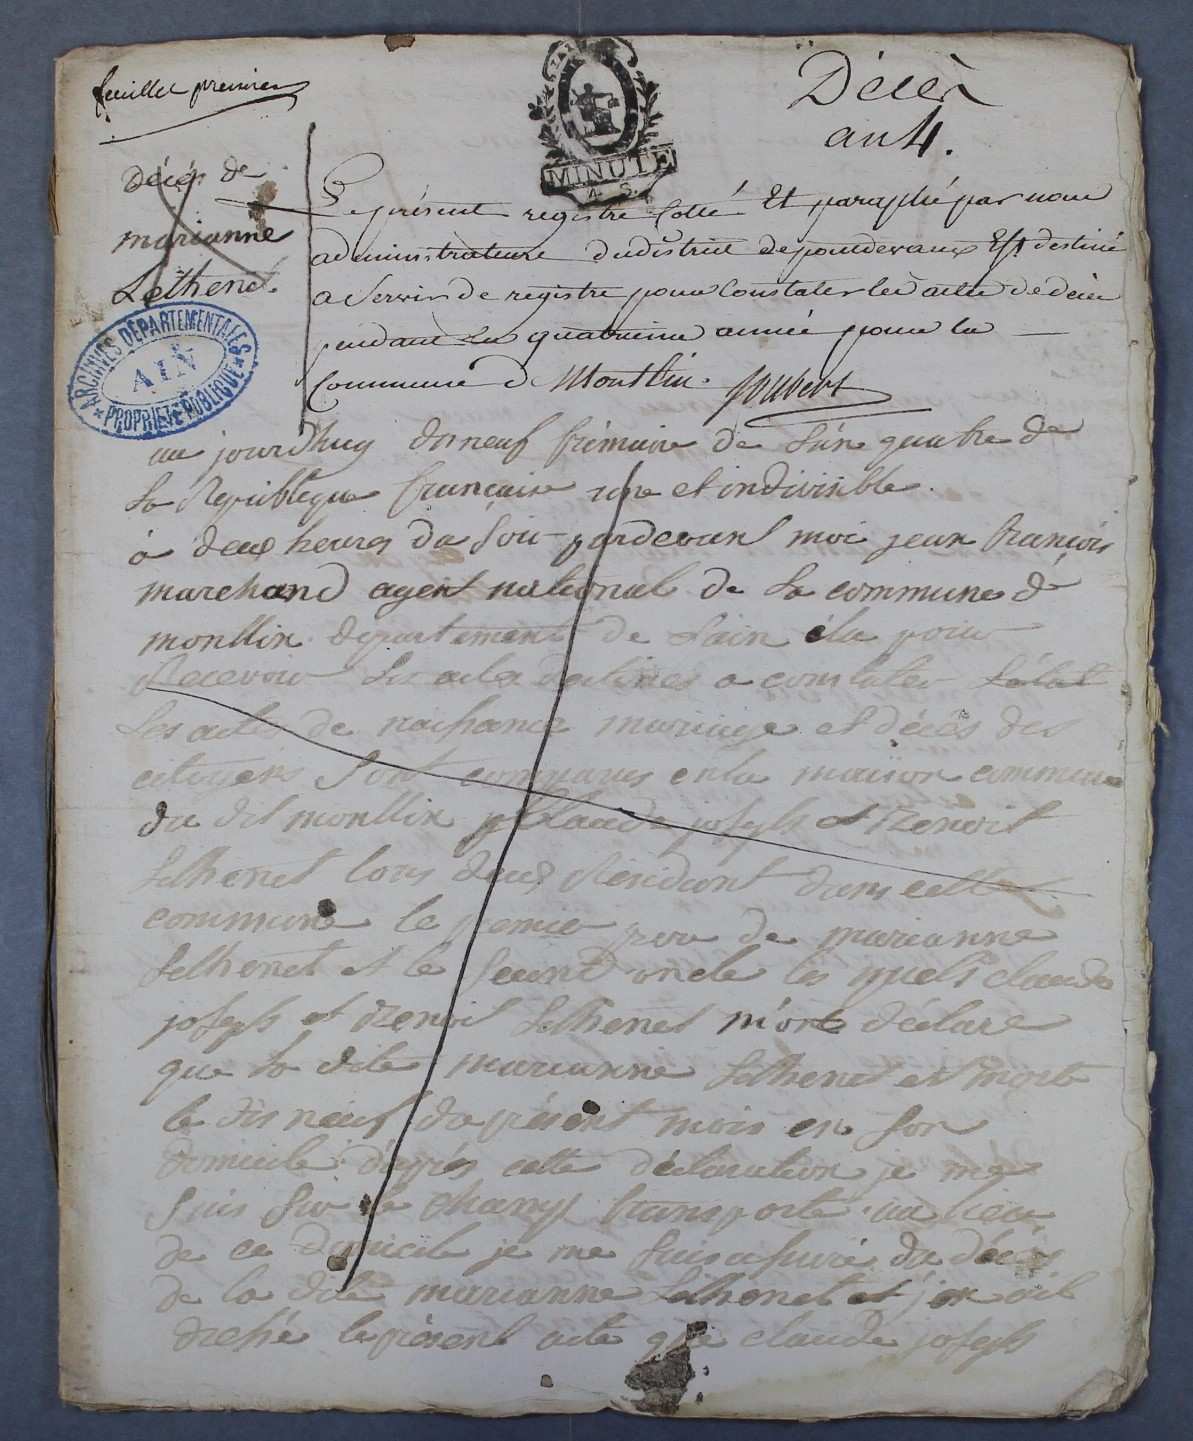 feuillet premier
Décès
an 4.
MINUTE
4. S.
décès de
marianne
Lethenet.
ARCHIVES DÉPARTEMENTALES
AIN
PROPRIÉTÉ PUBLIQUE
Le présent registre Cotté Et paraphé par nous
administrateure du district de pontdevaux Est destiné
a Servir de registre pour Constater les acte de déces
pendant la quatrieme année pour la
Commune de Montlin. Joubert
au jourdhuy dixneuf frimaire de l'an quatre de
la Republique française une et indivisible.
à deux heures du soir pardevant moi jean françois
marchand agent national de la commune de
monllin département de l'ain élu pour
Recevoir les actes destinés a constater l'état
les actes de naissance mariage et décès des
citoyens sont comparus en la maison commune
du dit monllin claude joseph et Benoit
Lethenet tous deux Résidant dans cette
commune le premier pere de marianne
Lethenet et le second oncle les quels claude
joseph et Benoit Lethenet m'ont déclaré
que la dite marianne Lethenet est morte
le dix neuf du présent mois en son
domicile d'après cette déclaration je me
suis sur le champ transporté au lieu
de ce domicile je me suis assuré du décès
de la dite marianne Lethenet et j'en ait
dressé le présent acte que claude joseph